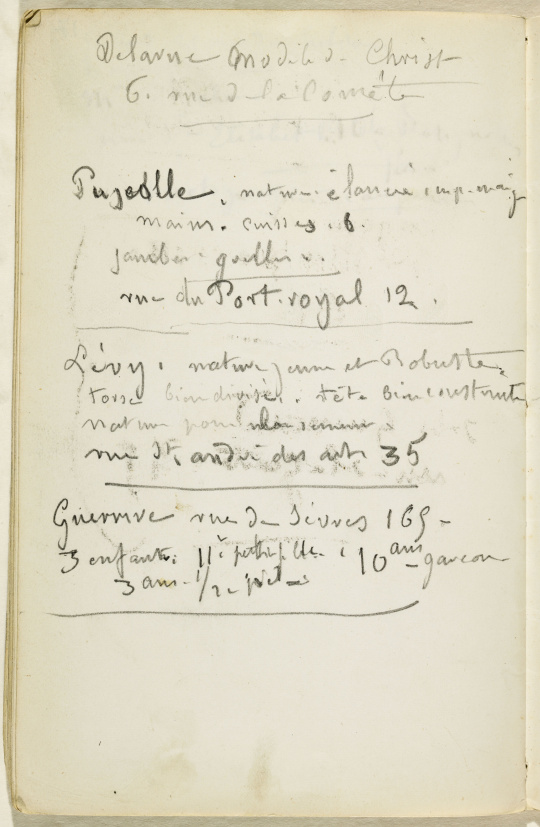 Delarue Modèle de Christ
6. rue de la Comète
Pujolle, nature élancée
mains. cuisses. 6.
jambes grelles.
rue du Port. royal 12.
Lévy. nature jeune et Robuste.
torse bien divisé. tête bien construite
nature pour
rue St. andré des arts 35
rue de Sèvres 165
3 enfants. 11 petite fille. 10 ans garçon
3 ans. 1/2